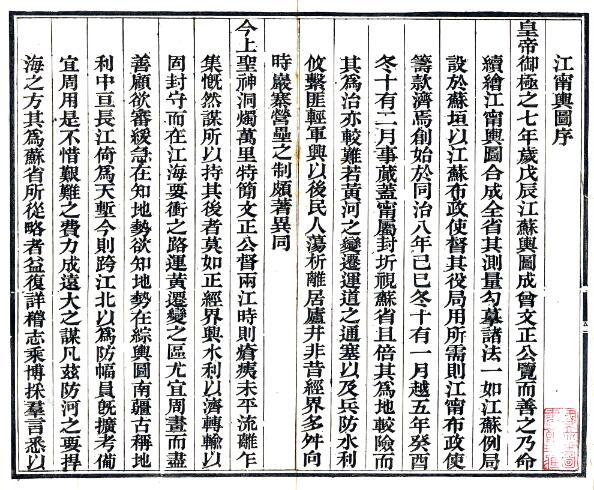 江甯輿圖序
皇帝御極之七年歲戊辰江蘇輿圖成曾文正公覽而善之乃命
續繪江甯輿圖合成全省其測量勾摹諸法一如江蘇例局
設於蘇垣以江蘇布政使督其役局用所需則江甯布政使
籌款濟焉創始於同治八年己巳冬十有一月越五年癸酉
冬十有二月事蕆蓋甯屬封圻視蘇省且倍其爲地較險而
其爲治亦較難若黃河之變遷運道之通塞以及兵防水利
攸繫匪輕軍興以後民人蕩析離居廬井非昔經界多舛向
時巖寨營壘之制頗著異同
今上聖神洞燭萬里特簡文正公督兩江時則瘡痍未平流離乍
集慨然謀所以持其後者莫如正經界興水利以濟轉輸以
固封守而在江海要衝之路運黃遷變之區尤宜周晝而盡
善顧欲審緩急在知地勢欲知地勢在綜輿圖南疆古稱地
利中亘長江倚爲天塹今則跨江北以爲防幅員旣擴考葡
宜周用是不惜艱難之費力成遠大之謀凡茲防河之要捍
海之方其爲蘇省所從略者益復詳稽志乘博採羣言悉以